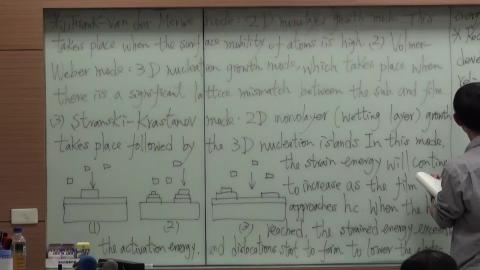 Frank-van der Merwe mode: 2D monolayer growth mode. This
takes place when the surface mobility of atoms is high. (2) Volmer-
Weber mode: 3D nucleation growth mode, which takes place when
there is a significant lattice mismatch between the sub and film
(3) Stranski-Krastanov mode: 2D monolayer (wetting layer) growth
takes place followed by the 3D nucleation islands In this mode,
the strain energy will continue
to increase as the film
approaches hc When the
reached, the strained energy exceeds
the activation energy, and dislocations start to form to lower the
(1)
(2)
(3)